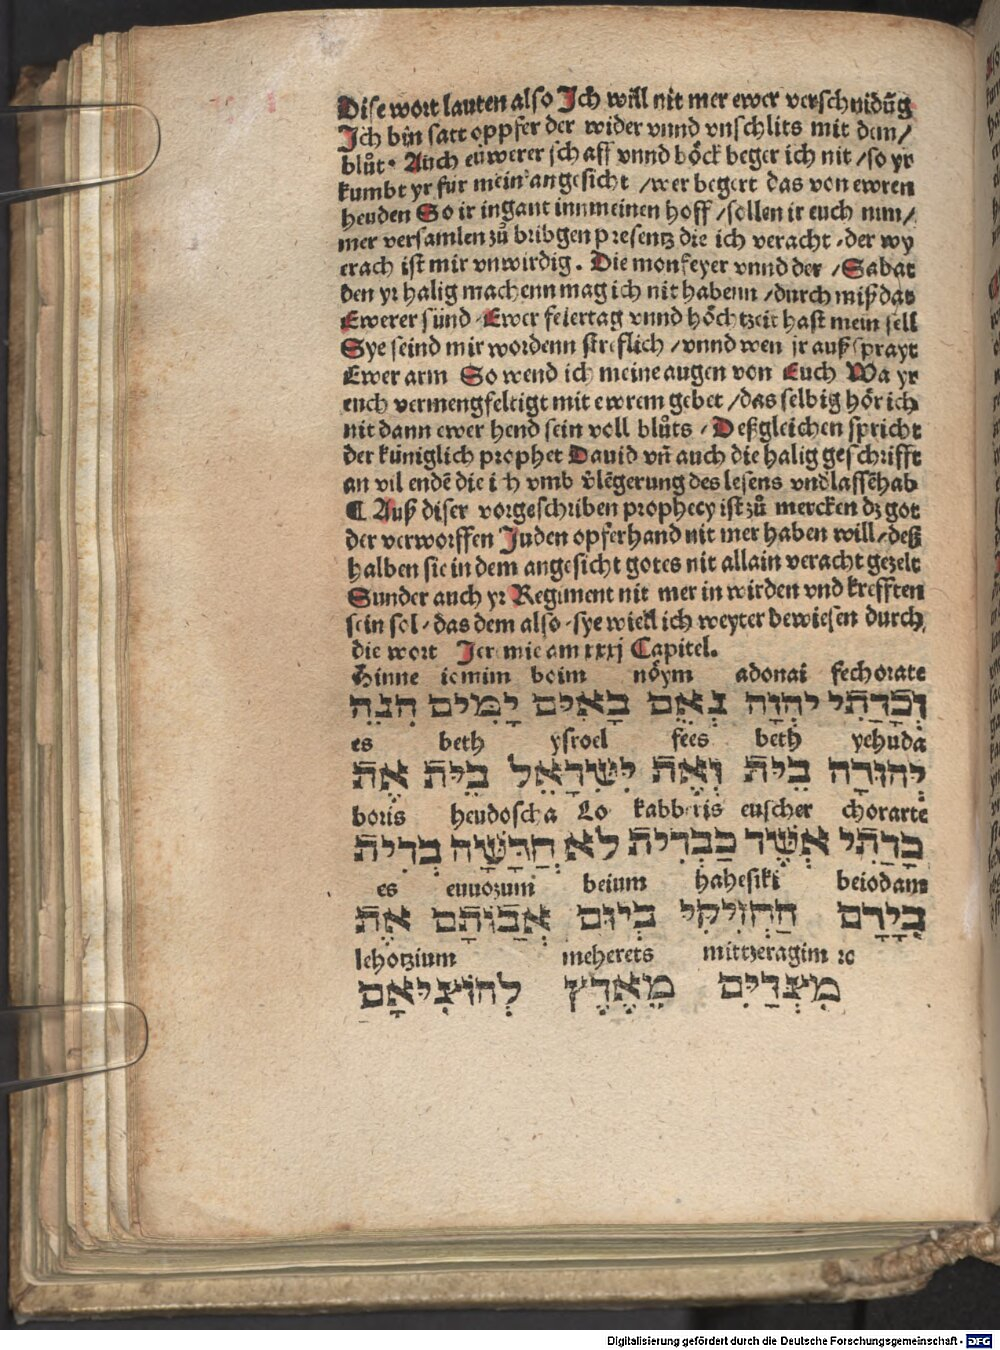 Dise wort lauten also Ich will nit mer ewer verschnidūg
Ich bün satt oppfer der wider vnnd vnschlits mit dem/
blůt· Auch eüwerer schaff vnnd böck beger ich nit /so yr
kumbt yr für mein angesicht /wer begert das von ewren
henden So ir ingant inn meinen hoff /sollen ir euch nim/
mer versamlen zů bribgen presentz die ich veracht ·der wy
erach ist mir vnwirdig. Die monfeyer vnnd der /Sabat
den yr halig machenn mag ich nit habenn /durch miß das
Ewerer sünd ·Ewer feiertag vnnd höchtzeit hast mein sell
Sye seind mir wordenn streflich /vnnd wen jr auß sprayt
Ewer arm So wend ich meine augen von Euch Wa yr
euch vermengfeltigt mit ewrem gebet /das selbig hör ich
nit dann ewer hend sein voll blůts /Deßgleichen spricht
der küniglich prophet Dauid vn̄ auch die halig geschrifft
an vil endē die ich vmb v̄lēgerung des lesens vnd lassēhab
¶ Auß diser vorgeschriben prophecy ist zů mercken dz got
der verworffen Juden opferhand nit mer haben will/deß
halben sie in dem angesicht gotes nit allain veracht gezelt
Sunder auch yr Regiment nit mer in wirden vnd krefften
sein sol/das dem also·sye wiell ich weyter bewiesen durch
die wort Jeremie am xxxj Capitel.
Hinne iemim boim nöym adonai fechorate
וְכָרַתִּי יְהֹוָה נְאֻם בָּאִים יָמִים הִנֵּה
es beth ysroel fees beth yehuda
יְהוּדָה בֵּית וְאֶת יִשְׂרָאֵל בֵּית אֶת
boris heudoscha Lo kabberis euscher chorarte
כָרַתִּי אֲשֶׁר כַבְּרִית לֹא חֲדָשָׁה בְּרִית
es euuozum beium hahesiki beiodam
בְיָדָם הַחֲזִיקִי בְּיוֹם אֲבוֹתָם אֶת
lehotzium meherets mittzeragim ꝛc
מִצְרַיִם מֵאֶרֶץ לְהוֹצִיאָם
Digitalisierung gefördert durch die Deutsche Forschungsgemeinschaft - DFG